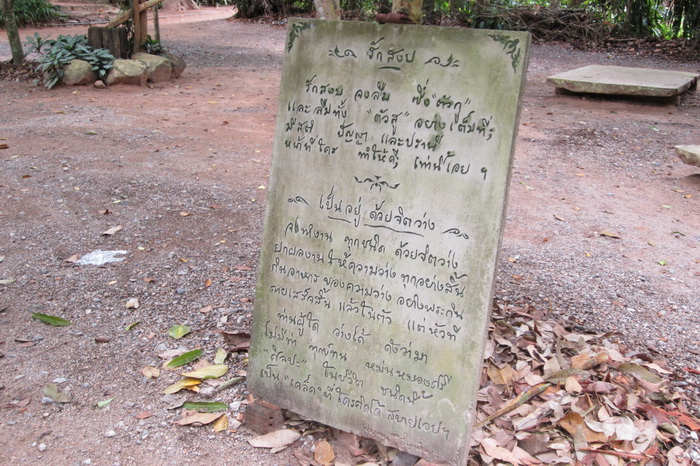 รักสงบ
รักสงบ จงลืม ชื่อ "ตัวกู"
และลืมทั้ง "ตัวสู" อย่างเต็มที่
มีสติ ปัญญา และปรานี
หน้าที่ใคร ทำให้ดี เท่านี้เอย ฯ
เป็นอยู่ ด้วยจิตว่าง
จงทำงาน ทุกชนิด ด้วยจิตว่าง
ยกผลงาน ให้ความว่าง ทุกอย่างสิ้น
กินอาหาร ของความว่าง อย่างพระกิน
ตายเสร็จสิ้น แล้วในตัว แต่หัวที
ท่านผู้ใด ว่างได้ ดังว่ามา
ไม่มีท่า ทุกข์ทน หม่นหมองศรี
"ศิลปะ" ในชีวิต ชนิดนี้
เป็น "เคล็ด" ที่ใครคิดได้ สบายเอย ฯ